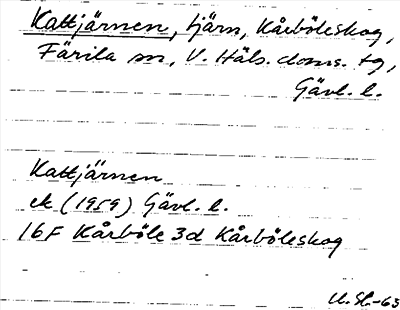 Kattjärnen, tjärn, Kårböleskog,
Färila sn, V. Häls. doms. tg,
Gävl. l.
Kattjärnen
ek (1959) Gävl. l.
16F Kårböle 3d Kårböleskog
U.St.-63